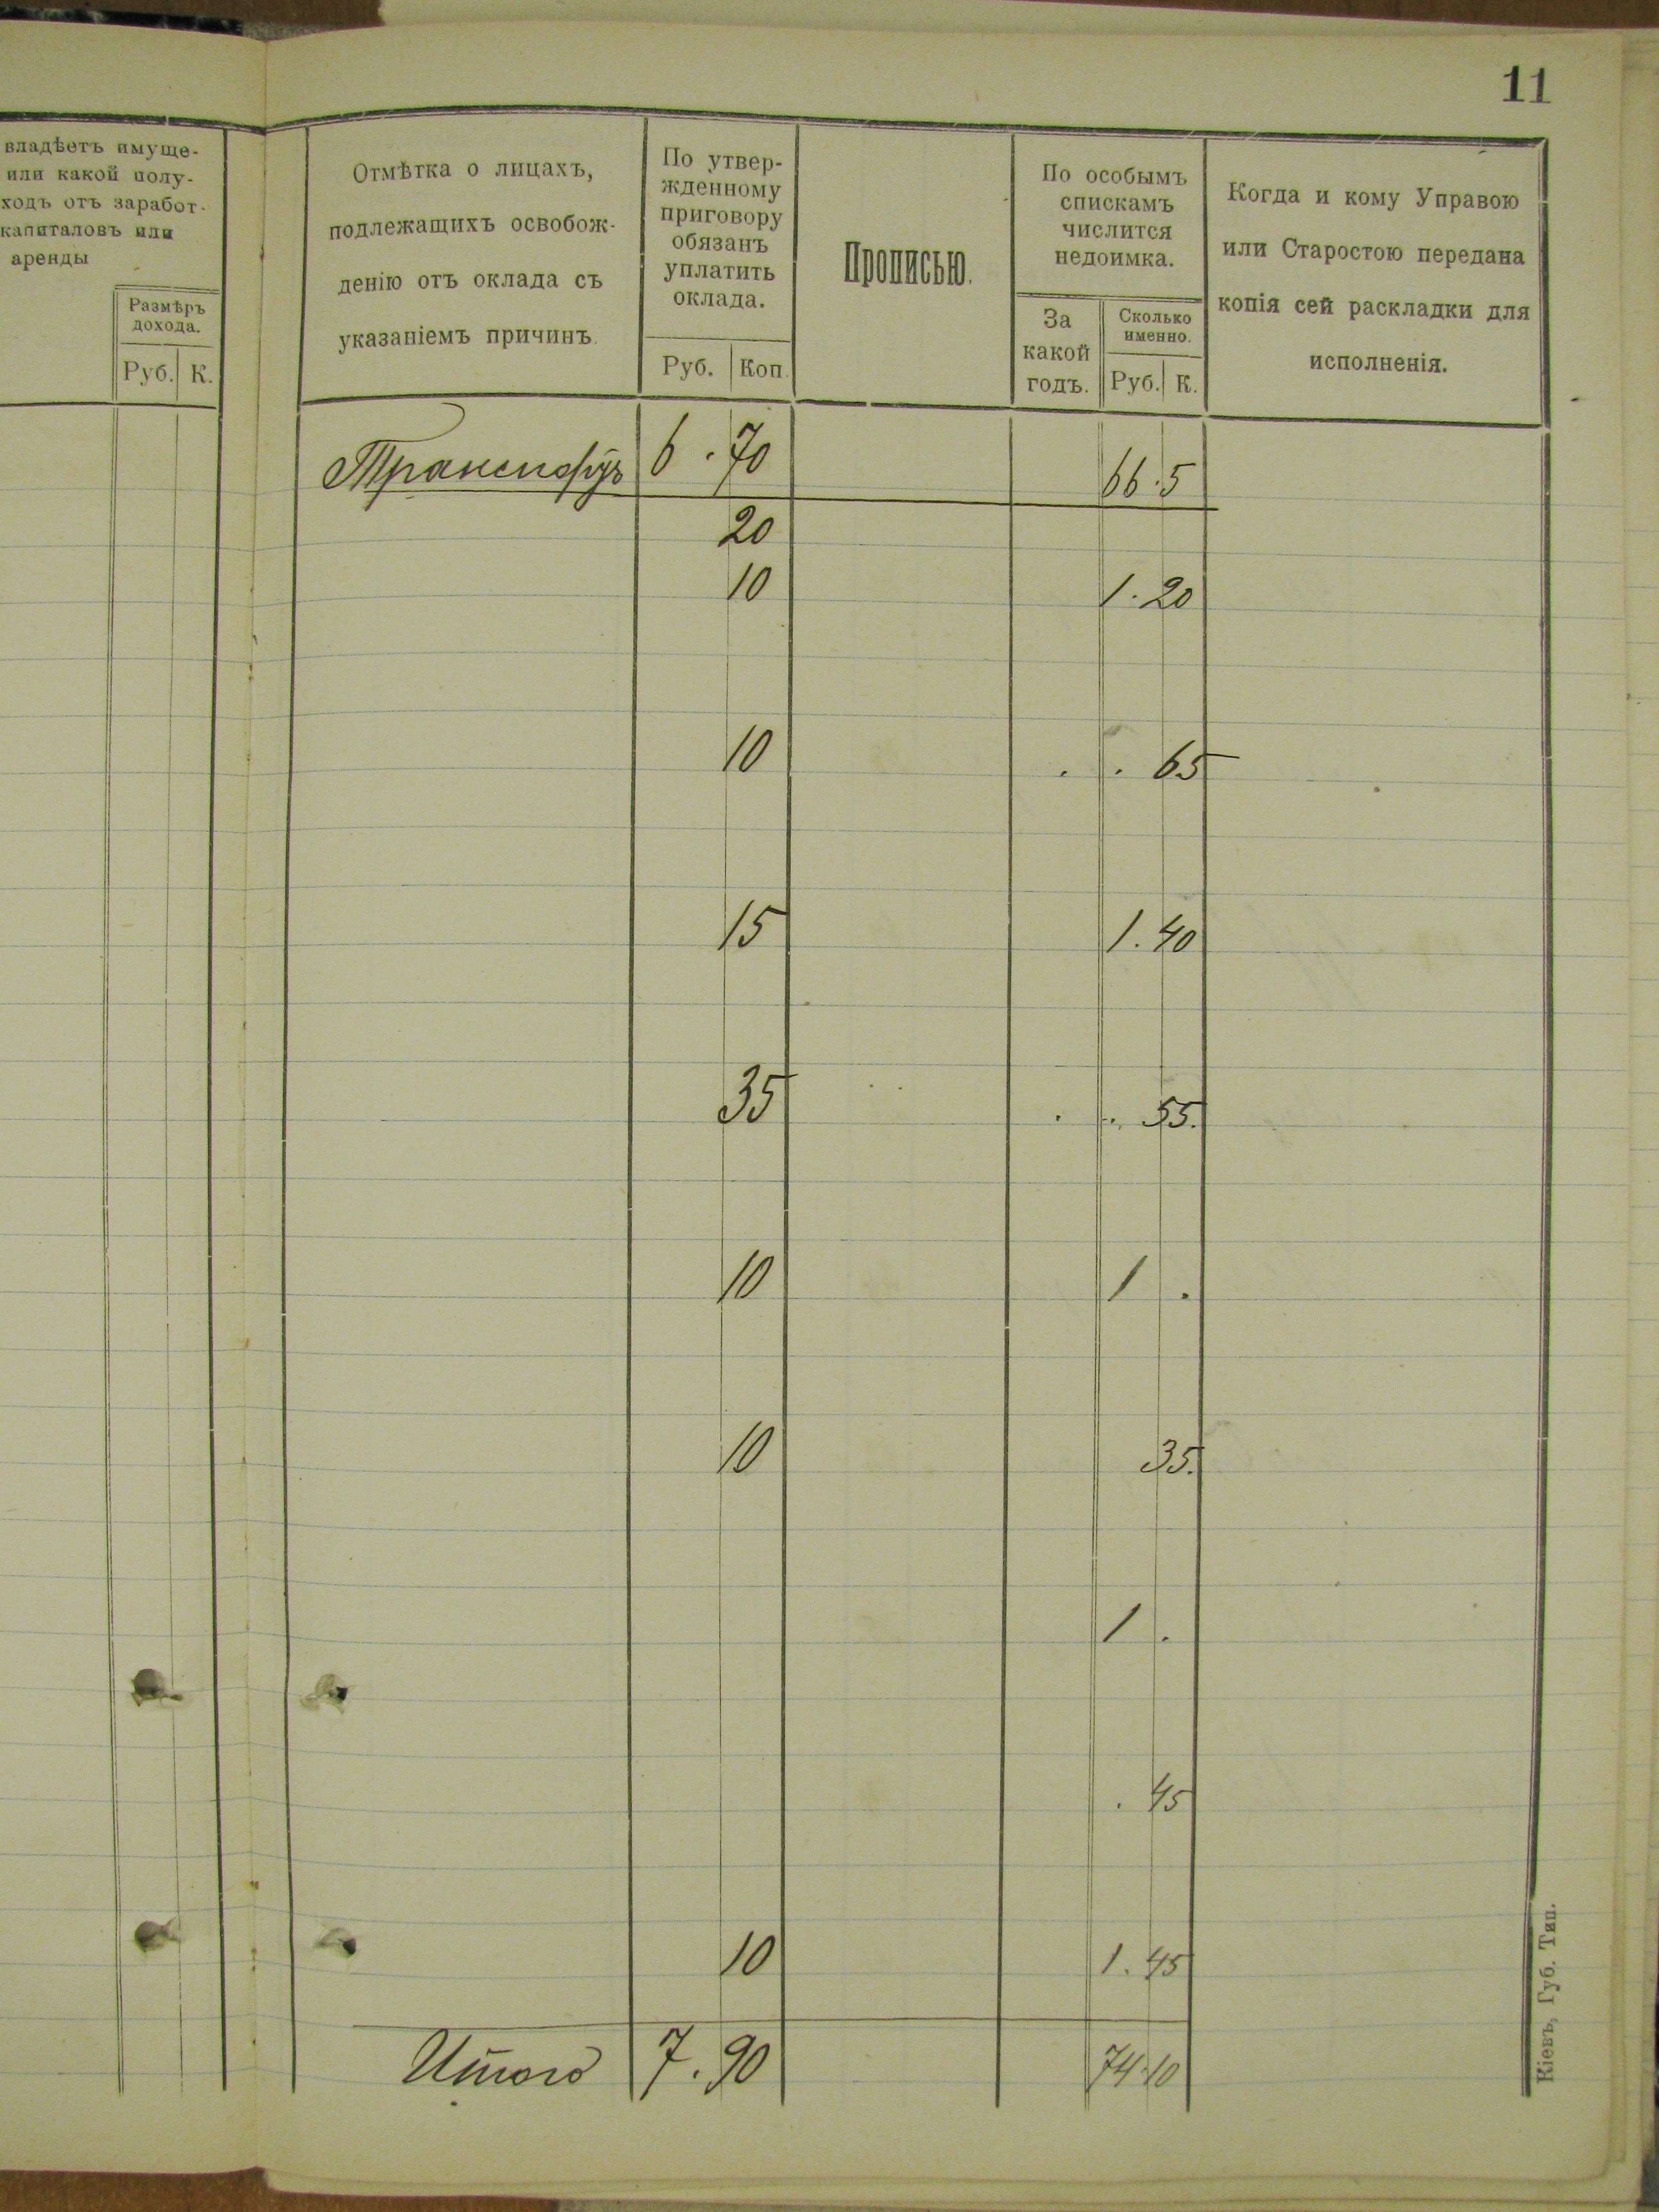 11
владѣетъ имуще-
или какой полу-
ходъ отъ заработ-
капиталовъ или
аренды
Размѣръ
дохода.
Руб. К.
Отмѣтка о лицахъ,
подлежащихъ освобож-
денію отъ оклада съ
указаніемъ причинъ.
По утвер-
жденному
приговору
обязанъ
уплатить
оклада.
Руб. Коп.
Прописью.
По особымъ
спискамъ
числится
недоимка.
За
какой
годъ.
Сколько
именно.
Руб. К.
Когда и кому Управою
или Старостою передана
копія сей раскладки для
исполненія.
6 . 70 66 . 5
20
10 1 . 20
10 . . 65
15 1 . 40
35 . . 55.
10 1 .
10 35.
1 .
. 45
10 1 . 45
Итого 7 . 90 74.10
Кіевъ, Губ. Тип.